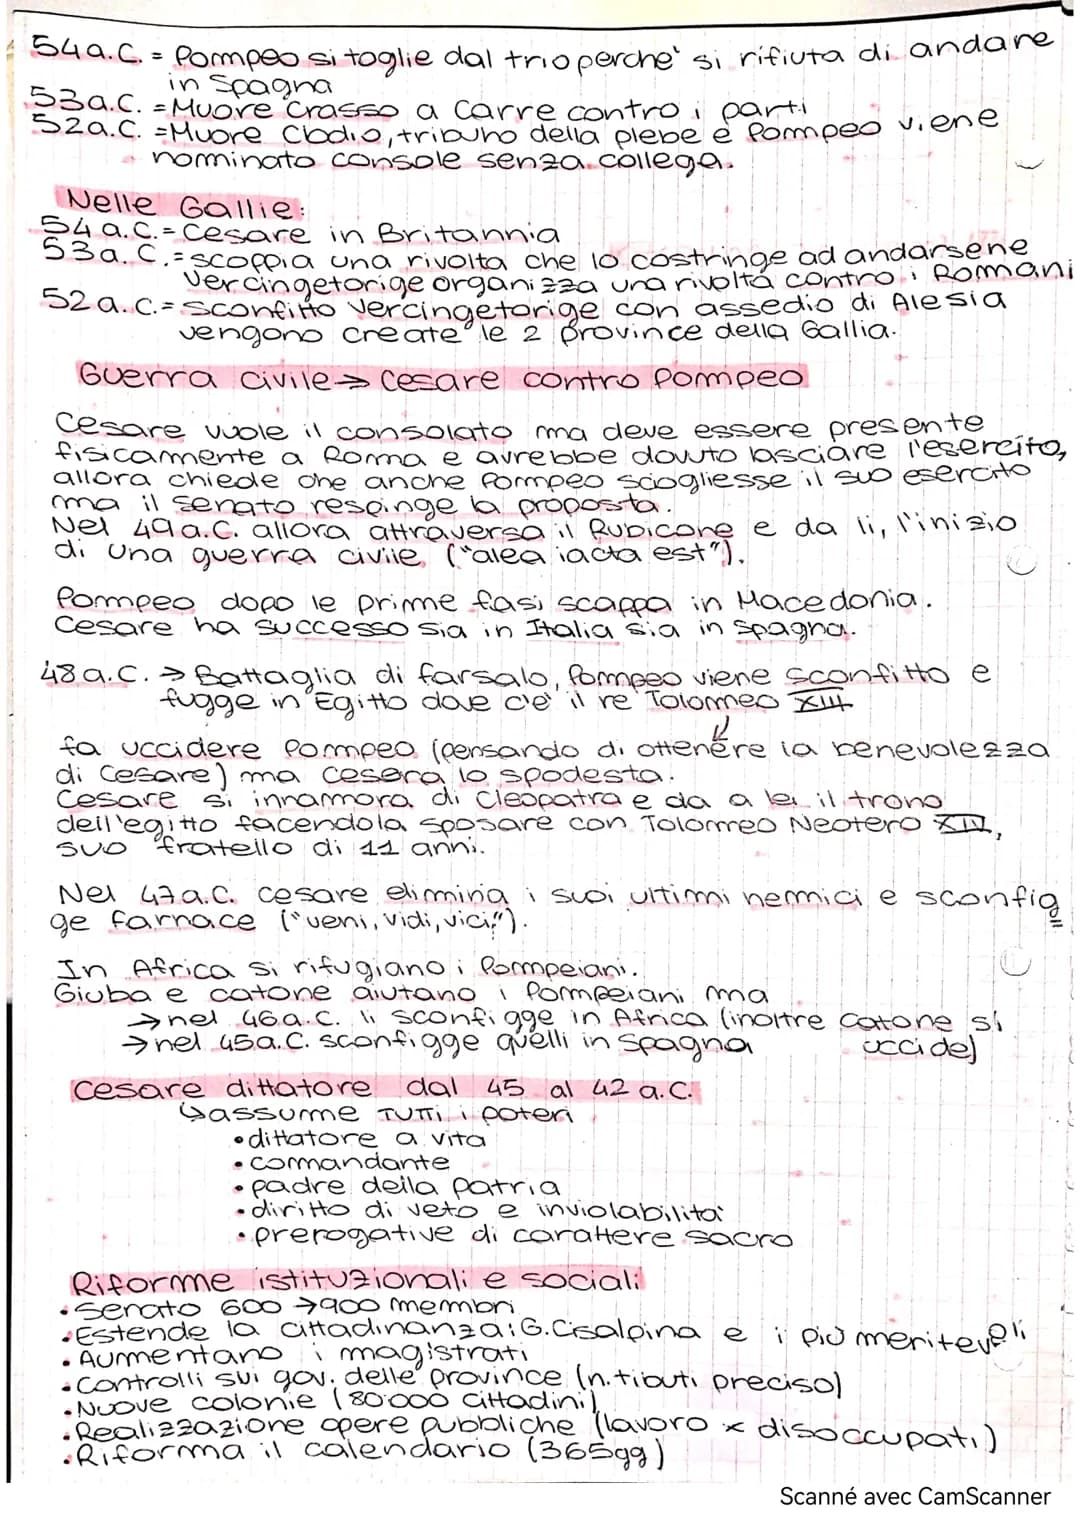 54a.C. = Pompeo si toglie dal trio perche' si rifiuta di andare
in Spagna
53a.C. = Muore Crasso a Carre contro i parti
52a.C. = Muore Clodio, tribuno della plebe e Pompeo viene
nominato console senza collega.
Nelle Gallie:
54 a.C. = Cesare in Britannia
53 a.C. = scoppia una rivolta che lo costringe ad andarsene
Vercingetorige organizza una rivolta contro i Romani
52 a.C. = Sconfitto Vercingetorige con assedio di Alesia
vengono create le 2 province della Gallia.
Guerra civile → Cesare contro Pompeo
Cesare vuole il consolato ma deve essere presente
fisicamente a Roma e avrebbe dovuto lasciare l'esercito,
allora chiede che anche Pompeo sciogliesse il suo esercito
ma il senato respinge la proposta.
Nel 49 a.C. allora attraversa il Rubicone e da li, l'inizio
di una guerra civile ("alea iacta est").
Pompeo dopo le prime fasi scappa in Macedonia.
Cesare ha successo sia in Italia sia in Spagna.
48 a.C. → Battaglia di farsalo, Pompeo viene sconfitto e
fugge in Egitto dove c'e' il re Tolomeo XIII
fa uccidere Pompeo (pensando di ottenere la benevolezza
di Cesare) ma Cesera lo spodesta.
Cesare si innamora di Cleopatra e da a lei il trono
dell'egitto facendola sposare con Tolomeo Neotero XIV,
suo fratello di 11 anni.
Nel 47 a.C. cesare elimina i suoi ultimi nemici e sconfig
ge farnace ("veni, vidi, vici").
In Africa si rifugiano i Pompeiani.
Giuba e catone aiutano i Pompeiani ma
→ nel 46 a.C. li sconfigge in Africa (inoltre Catone si
→ nel 45 a.C. sconfigge quelli in Spagna uccide)
Cesare dittatore dal 45 al 42 a.C.
↳ assume TUTTI i poteri
• dittatore a vita
• comandante
• padre della patria
• diritto di veto e inviolabilità
• prerogative di carattere sacro
Riforme istituzionali e sociali
• Senato 600 → 900 membri
• Estende la cittadinanza: G. Cisalpina e i più meritevoli
• Aumentano i magistrati
• Controlli sui gov. delle province (n. tibuti preciso)
• Nuove colonie (80.000 cittadini)
• Realizzazione opere pubbliche (lavoro x disoccupati)
• Riforma il calendario (365gg)
Scanné avec CamScanner